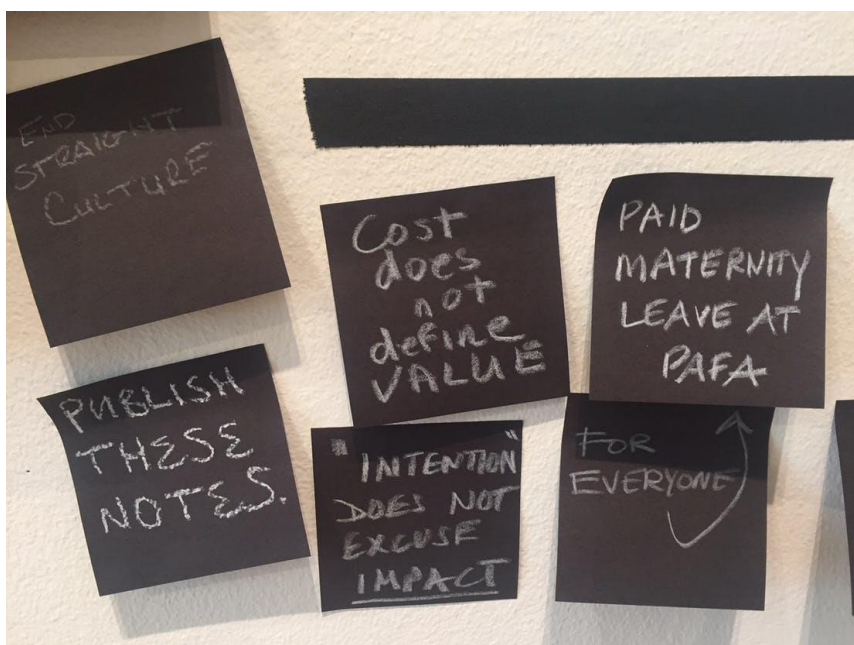 END
STRAIGHT
CULTURE
Cost
does
not
define
VALUE
PAID
MATERNITY
LEAVE AT
PAFA
PUBLISH
THESE
NOTES.
"INTENTION"
DOES NOT
EXCUSE
IMPACT
FOR
EVERYONE